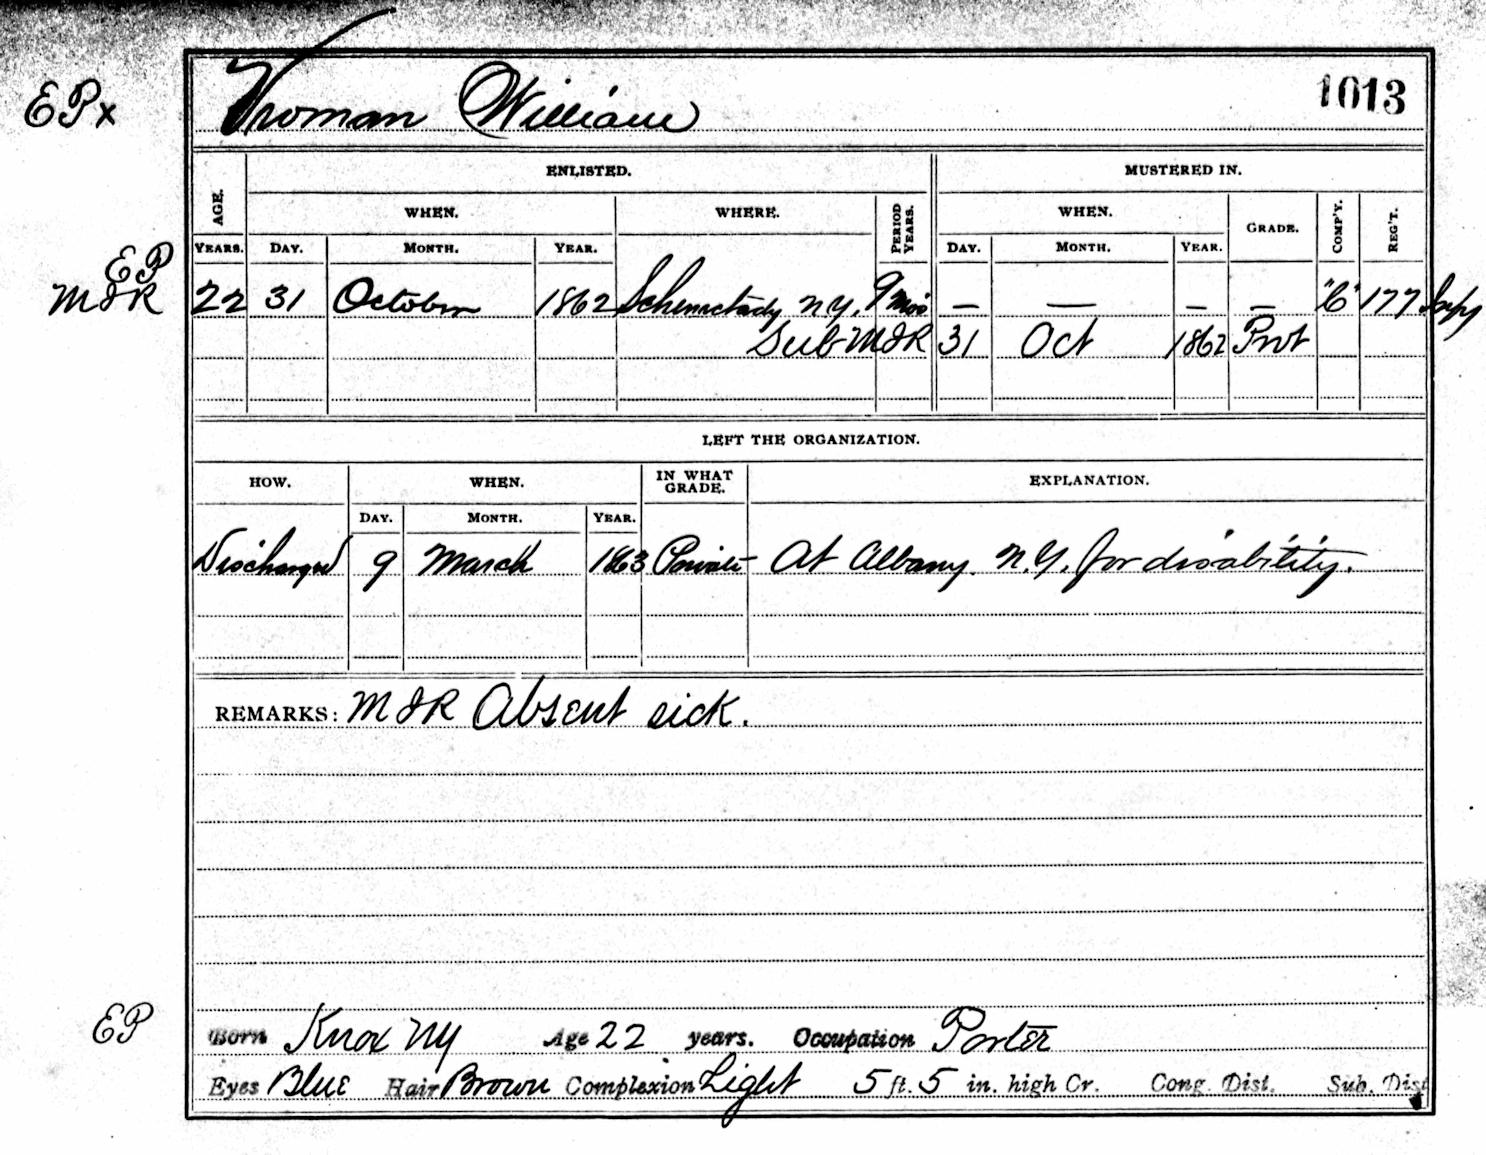 EPx
Vroman William 1013
ENLISTED. MUSTERED IN.
AGE. WHEN. WHERE. PERIOD YEARS. WHEN. GRADE. COMP'Y. REG'T.
YEARS. DAY. MONTH. YEAR. DAY. MONTH. YEAR.
EP
MIR 22 31 October 1862 Schenectady N.Y. 9 Mos — — — — "C" 177 Infy
Sub MIR 31 Oct 1862 Prvt
LEFT THE ORGANIZATION.
HOW. WHEN. IN WHAT GRADE. EXPLANATION.
DAY. MONTH. YEAR.
Discharged 9 March 1863 Private At Albany. N.Y. for disability.
REMARKS: MIR Absent sick.
EP Born Knox NY Age 22 years. Occupation Porter
Eyes Blue Hair Brown Complexion Light 5 ft. 5 in. high Cr. Cong. Dist. Sub. Dist